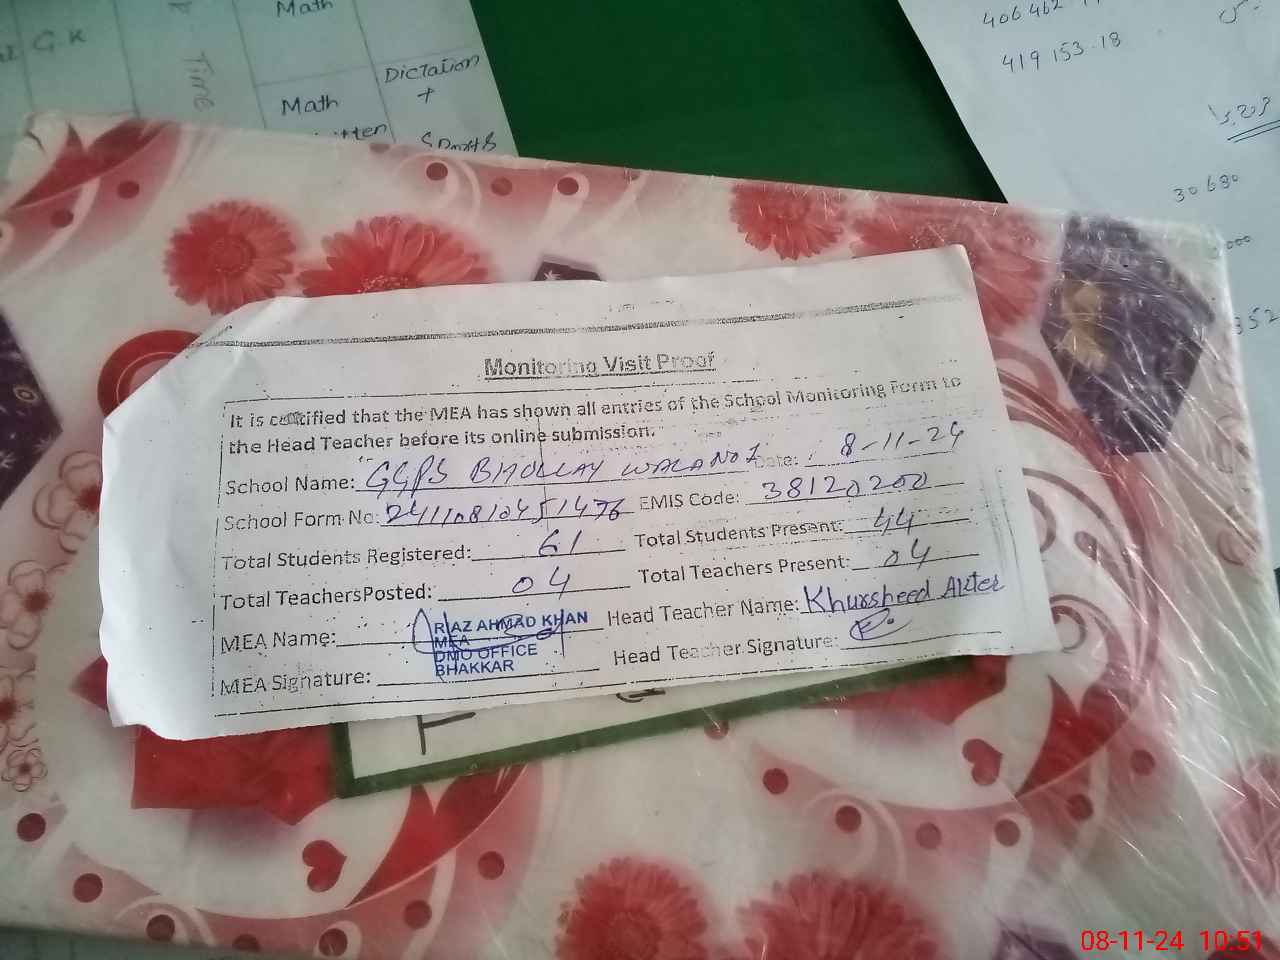 Math
G.K
Time
Dictation
+
Math
406 462
419 153.18
30680
352
Monitoring Visit Proof
It is certified that the MEA has shown all entries of the School Monitoring Form to
the Head Teacher before its online submission.
School Name: GGPS BHOLLAY WALA NO 1 Date: 8-11-24
School Form No: 24110810451476 EMIS Code: 38120200
Total Students Registered: 61 Total Students Present: 44
Total TeachersPosted: 04 Total Teachers Present: 04
MEA Name: RIAZ AHMAD KHAN Head Teacher Name: Khursheed Akter
MEA
DMO OFFICE
BHAKKAR
MEA Signature: Head Teacher Signature:
08-11-24 10:51